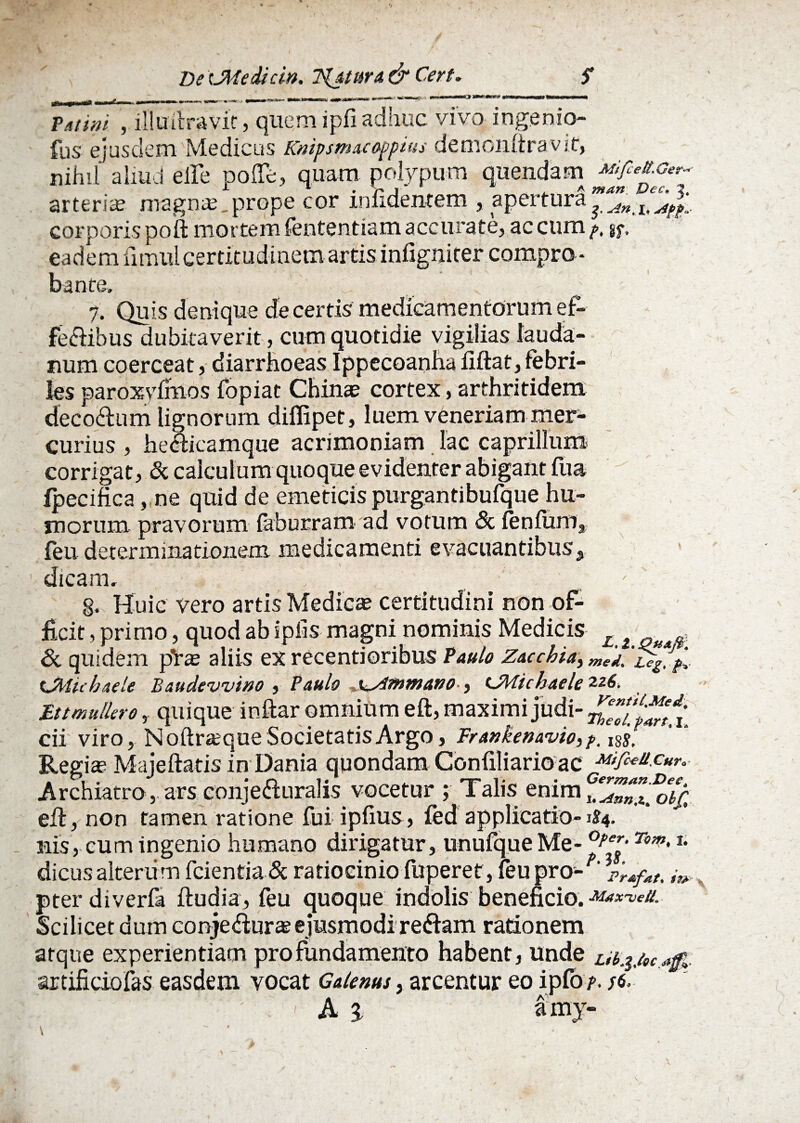 De Medicin. Natura & Cert. 5
Patini , illuſtravit, quem ipſi adhuc vivo ingenio-
ſus ejusdem Medicus Knipsmacoppius demonſtravit,
nihil aliud eſſe poſſe, quam polypum quendam
arteriæ magnæ prope cor inſidentem , apertura
corporis poſt mortem ſententiam accurate, ac cum
eadem ſimul certitudinem artis inſigniter compro-
bante.
Miſcell. Ger-
man Dec. 3.
3. An. 1. App.
p. 85.
7. Quis denique de certis medicamentorum ef-
fectibus dubitaverit, cum quotidie vigilias lauda-
num coerceat, diarrhoeas Ippecoanha ſiſtat, febri-
les paroxyſmos ſopiat Chinæ cortex, arthritidem
decoctum lignorum diſſipet, luem veneriam mer-
curius , hecticamque acrimoniam lac caprillum
corrigat, & calculum quoque evidenter abigant ſua
ſpecifica, ne quid de emeticis purgantibuſque hu-
morum pravorum ſaburram ad votum & ſenſum,
ſeu determinationem medicamenti evacuantibus,
dicam.
8. Huic vero artis Medicæ certitudini non of-
ficit, primo, quod ab ipſis magni nominis Medicis
& quidem præ aliis ex recentioribus Paulo Zacchia,
Michaele Baudevvino , Paulo Ammano , Michaele
Ettmullero, quique inſtar omnium eſt, maximi judi-
cii viro, Noſtræque Societatis Argo, Frankenavio,
Regiæ Majeſtatis in Dania quondam Conſiliario ac
Archiatro, ars conjecturalis vocetur ; Talis enim
eſt, non tamen ratione ſui ipſius, ſed applicatio-
nis, cum ingenio humano dirigatur, unuſque Me-
dicus alterum ſcientia & ratiocinio ſuperet, ſeu pro-
pter diverſa ſtudia, ſeu quoque indolis beneficio.
Scilicet dum conjecturæ ejusmodi rectam rationem
atque experientiam pro fundamento habent, unde
artificioſas easdem vocat Galenus, arcentur eo ipſo
L. 2. Quæſt.
med. Leg. p.
226.
Ventil. Med.
Theol. part. 1.
p. 188.
Miſcell. Cur.
German. Dec.
1. Ann. 2. Obſ.
184.
Oper. Tom. 1.
p. 38.
Præfat. in
Maxvell.
Lib. 3. loc. aff.
p. 56.
A 3 amy-